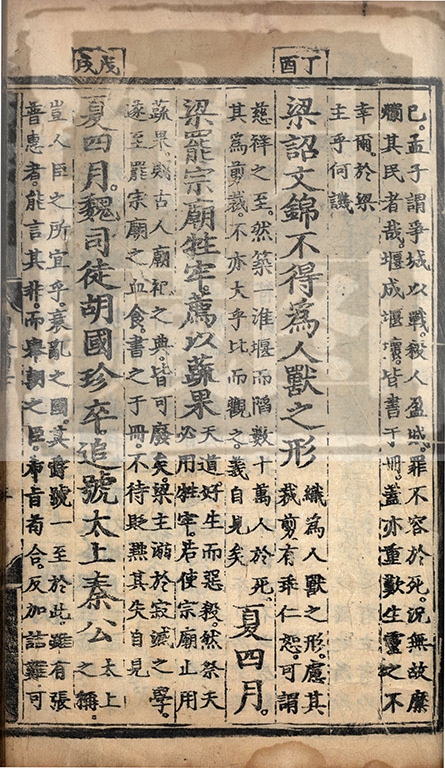 丁酉
戊戌
已。孟子謂爭城以戰。殺人盈城。罪不容於死。況無故糜
爛其民者哉。堰成堰壞。皆書于冊。蓋亦重歎生靈之不
幸爾。於梁
主乎何譏
梁詔文錦不得為人獸之形
織為人獸之形。慮其
裁剪有乖仁恕。可謂
慈祥之至。然築一淮堰而陷數十萬人於死。
其為剪裁。不亦大乎比而觀之。義自見矣
夏四月。
梁罷宗廟牲牢。薦以蔬果
天道好生而惡殺。然祭天
必用牲牢。若使宗廟止用
蔬果。則古人廟祀之典。皆可廢矣。梁主溺於寂滅之學。
遂至罷宗廟之血食。書之于冊。不待貶無其失自見
夏四月。魏司徒胡國珍卒。追號太上秦公
太上
之稱。
豈人臣之所宜乎。衰亂之國。其爵號一至於此。雖有張
普惠者。能言其非。而舉朝之臣。希旨苟合。反加詰難可